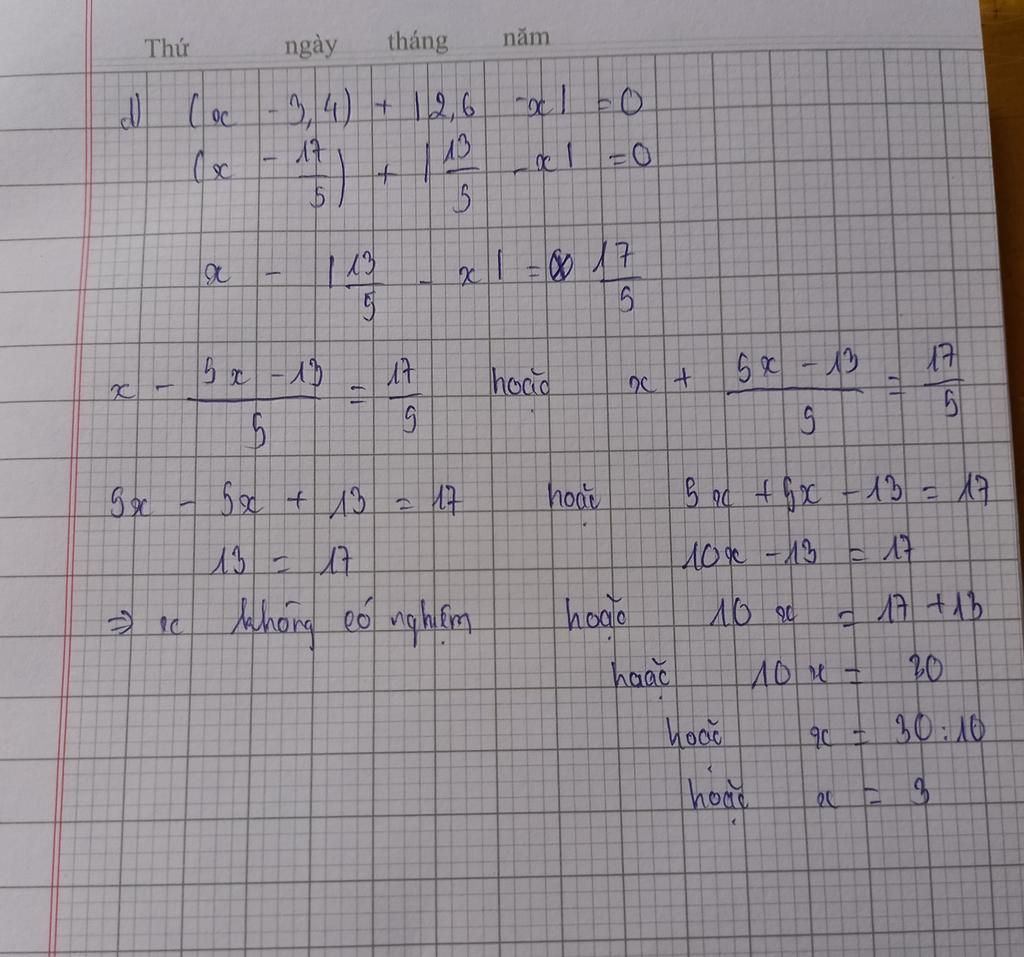 Thứ ngày tháng năm
d) (x - 3,4) + |2,6 - x| = 0
(x - 17/5) + |13/5 - x| = 0
x - |13/5 - x| = 17/5
x - (5x - 13)/5 = 17/5 hoặc x + (5x - 13)/5 = 17/5
5x - 5x + 13 = 17 hoặc 5x + 5x - 13 = 17
13 = 17 10x - 13 = 17
=> x không có nghiệm hoặc 10x = 17 + 13
hoặc 10x = 30
hoặc x = 30 : 10
hoặc x = 3